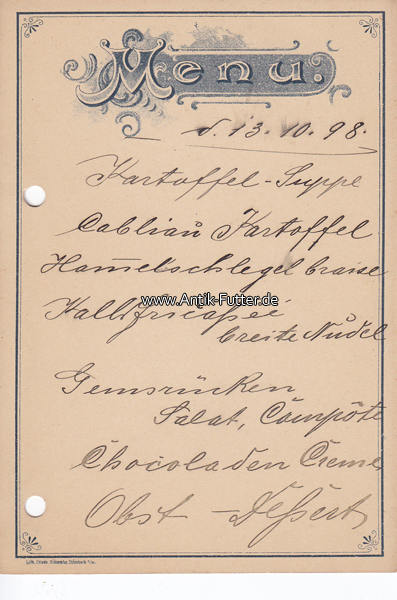 Menu.
d. 13. 10. 98.
Kartoffel-Suppe
Cabliau Kartoffel
Hamelschlegel braise
www.Antik-Futter.de
Kalbfricassée
breite Nudel
Gemsrücken
Salat, Compôte
Chocoladen Creme
Obst - Dessert